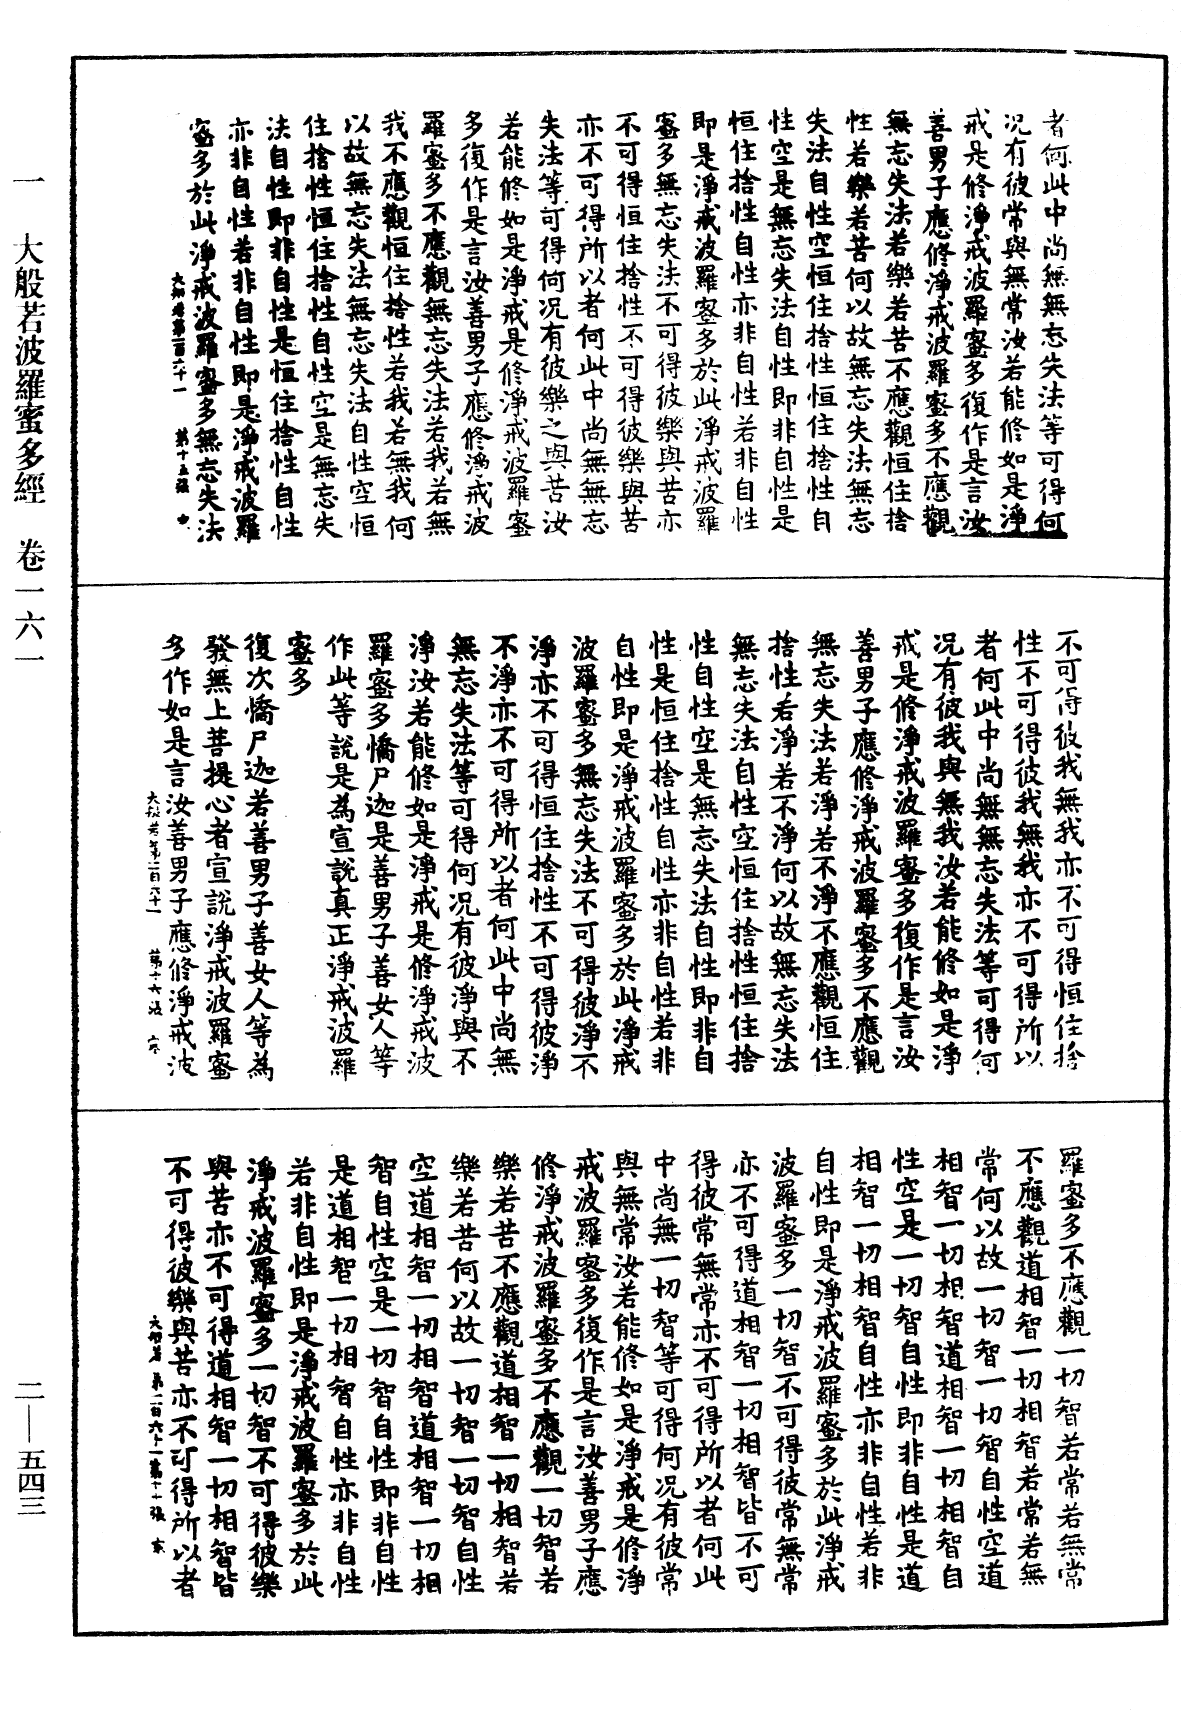 者何此中尚無無忘失法等可得何
況有彼常與無常汝若能修如是淨
戒是修淨戒波羅蜜多復作是言汝
善男子應修淨戒波羅蜜多不應觀
無忘失法若樂若苦不應觀恒住捨
性若樂若苦何以故無忘失法無忘
失法自性空恒住捨性恒住捨性自
性空是無忘失法自性即非自性是
恒住捨性自性亦非自性若非自性
即是淨戒波羅蜜多於此淨戒波羅
蜜多無忘失法不可得彼樂與苦亦
不可得恒住捨性不可得彼樂與苦
亦不可得所以者何此中尚無無忘
失法等可得何況有彼樂之與苦汝
若能修如是淨戒是修淨戒波羅蜜
多復作是言汝善男子應修淨戒波
羅蜜多不應觀無忘失法若我若無
我不應觀恒住捨性若我若無我何
以故無忘失法無忘失法自性空恒
住捨性恒住捨性自性空是無忘失
法自性即非自性是恒住捨性自性
亦非自性若非自性即是淨戒波羅
蜜多於此淨戒波羅蜜多無忘失法
第十五張
不可得彼我無我亦不可得恒住捨
性不可得彼我無我亦不可得所以
者何此中尚無無忘失法等可得何
況有彼我與無我汝若能修如是淨
戒是修淨戒波羅蜜多復作是言汝
善男子應修淨戒波羅蜜多不應觀
無忘失法若淨若不淨不應觀恒住
捨性若淨若不淨何以故無忘失法
無忘失法自性空恒住捨性恒住捨
性自性空是無忘失法自性即非自
性是恒住捨性自性亦非自性若非
自性即是淨戒波羅蜜多於此淨戒
波羅蜜多無忘失法不可得彼淨不
淨亦不可得恒住捨性不可得彼淨
不淨亦不可得所以者何此中尚無
無忘失法等可得何況有彼淨與不
淨汝若能修如是淨戒是修淨戒波
羅蜜多憍尸迦是善男子善女人等
作此等說是為宣說真正淨戒波羅
蜜多
復次憍尸迦若善男子善女人等為
發無上菩提心者宣說淨戒波羅蜜
多作如是言汝善男子應修淨戒波
第十六張
羅蜜多不應觀一切智若常若無常
不應觀道相智一切相智若常若無
常何以故一切智一切智自性空道
相智一切相智道相智一切相智自
性空是一切智自性即非自性是道
相智一切相智自性亦非自性若非
自性即是淨戒波羅蜜多於此淨戒
波羅蜜多一切智不可得彼常無常
亦不可得道相智一切相智皆不可
得彼常無常亦不可得所以者何此
中尚無一切智等可得何況有彼常
與無常汝若能修如是淨戒是修淨
戒波羅蜜多復作是言汝善男子應
修淨戒波羅蜜多不應觀一切智若
樂若苦不應觀道相智一切相智若
樂若苦何以故一切智一切智自性
空道相智一切相智道相智一切相
智自性空是一切智自性即非自性
是道相智一切相智自性亦非自性
若非自性即是淨戒波羅蜜多於此
淨戒波羅蜜多一切智不可得彼樂
與苦亦不可得道相智一切相智皆
不可得彼樂與苦亦不可得所以者
一 大般若波羅蜜多經 卷一六一
二—五四三